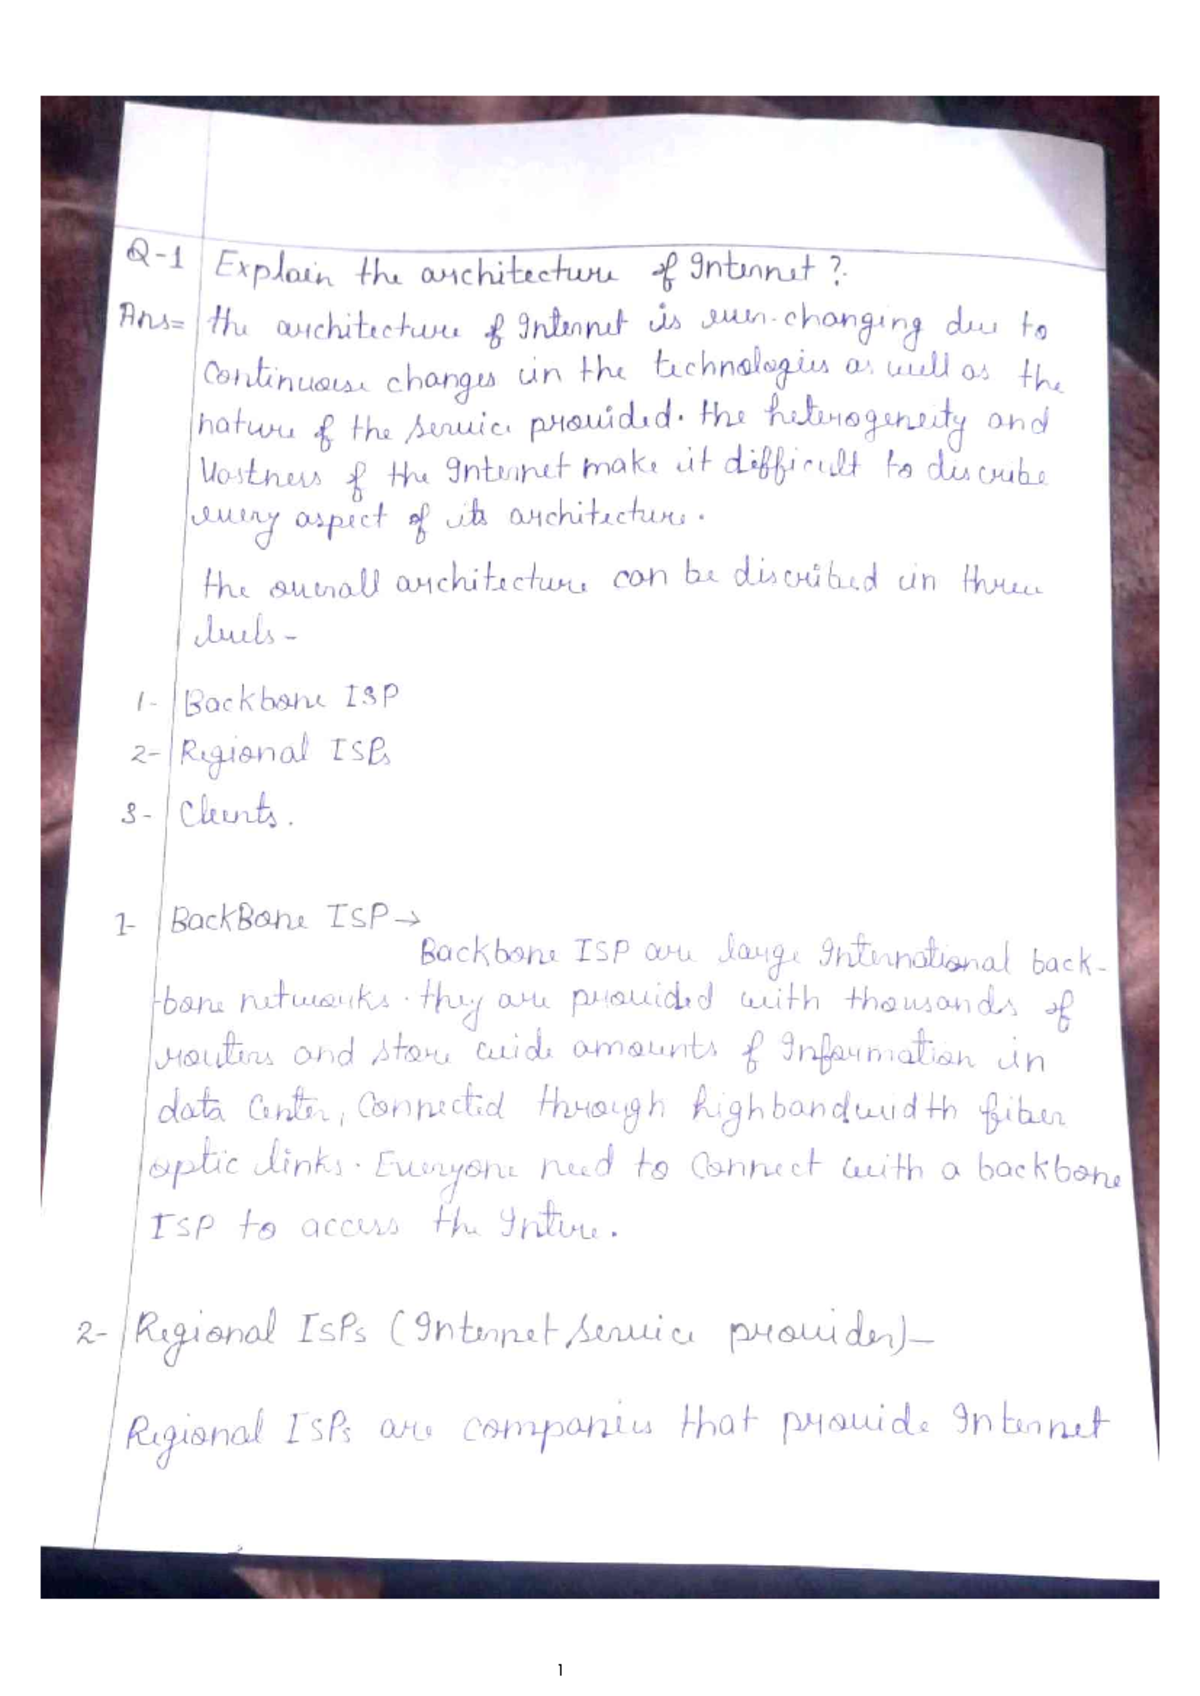 Q-1 Explain the architecture of Internet ?.
Ans= the architecture of Internet is ever-changing due to
continuouse changes in the technologies as well as the
nature of the service provided. the heterogeneity and
Vastness of the Internet make it difficult to discribe
every aspect of its architecture.
the overall architecture can be discribed in three
levels -
1- Backbone ISP
2- Regional ISPs
3- Clients.
1- BackBone ISP →
Backbone ISP are large International back-
-bone networks. they are provided with thousands of
routers and store wide amounts of Information in
data Center, Connected through highbandwidth fiber
optic links. Everyone need to Connect with a backbone
ISP to access the Intire.
2- Regional ISPs (Internet service provider)-
Regional ISPs are companies that provide Internet
1